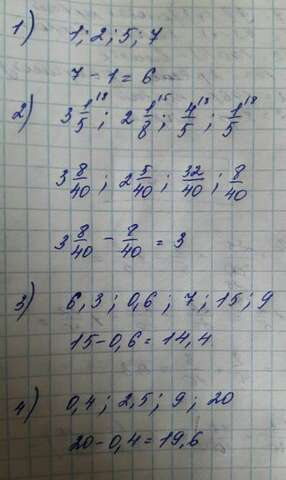 1) 1; 2; 5; 7
7 - 1 = 6
2) 3 1/5 ^18; 2 1/8 ^15; 4/5 ^18; 1/5 ^18
3 8/40; 2 5/40; 32/40; 8/40
3 8/40 - 8/40 = 3
3) 6,3; 0,6; 7; 15; 9
15 - 0,6 = 14,4
4) 0,4; 2,5; 9; 20
20 - 0,4 = 19,6